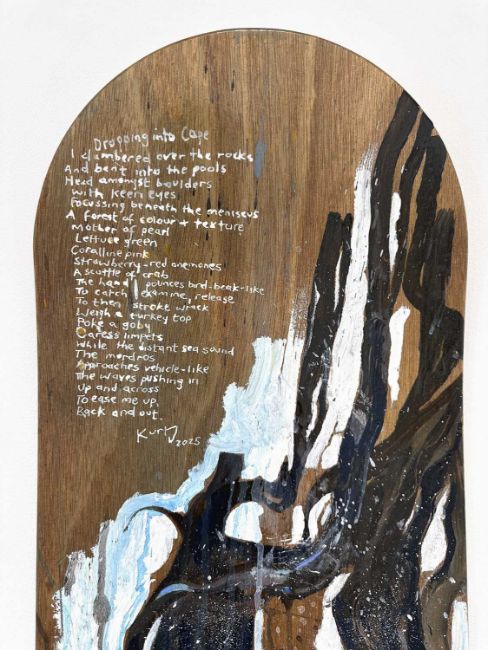 Dropping into Cape
I clambered over the rocks
And bent into the pools
Head amongst boulders
With keen eyes
Focussing beneath the meniscus
A forest of colour + texture
Mother of pearl
Lettuce green
Coralline pink
Strawberry-red anemones
A scuttle of crab
The hand pounces bird-beak-like
To catch, examine, release
To then stroke wrack
Weigh a turkey top
Poke a goby
Caress limpets
While the distant sea sound
The mordros
Approaches vehicle-like
The waves pushing in
Up and across
To ease me up,
Back and out.
Kurt 2025